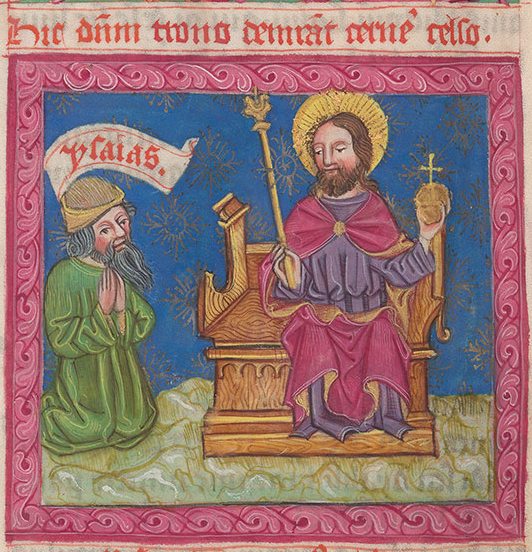 Hic dn̄m trono demr̄āt cerne᷑ celso.
ysaias.